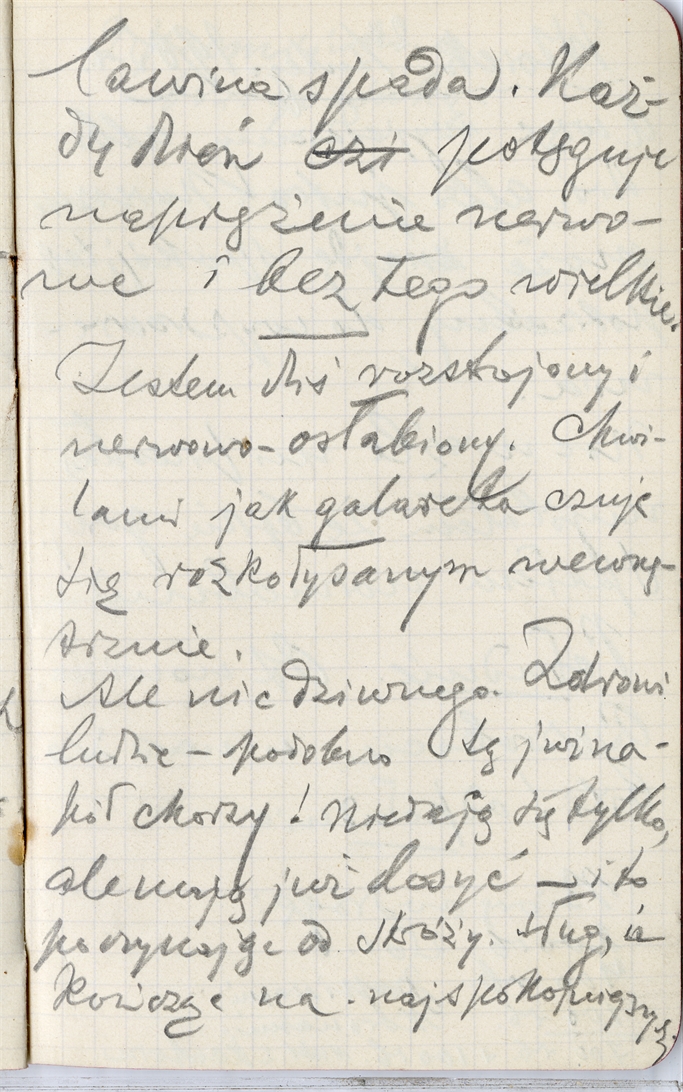 lawina spada. Każ-
dy dzień czi potęguje
naprężenie nerwo-
we i bez tego wielkie.
Jestem dziś rozstrojony i
nerwowo-osłabiony. Chwi-
lami jak galareta czuję
się rozkołysanym wewnę-
trznie.
Ale nic dziwnego. Zdrowi
ludzie – podobno są już na-
pół chorzy! nie dają się tylko,
ale mają już dosyć – i to
poczynając od stróży, sług, a
kończąc na najspokojniejszych